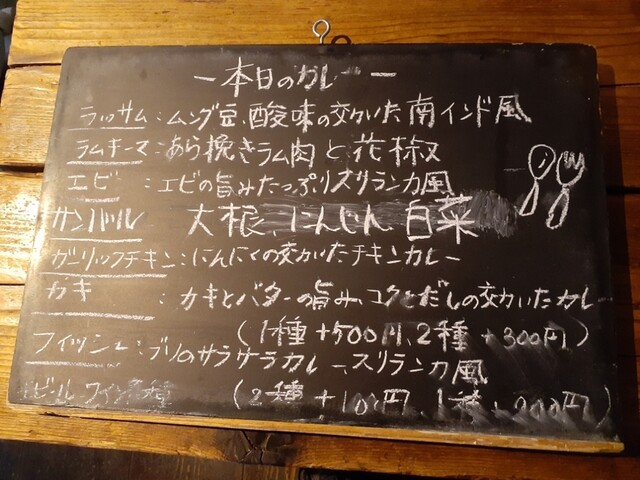 ー本日のカレーー
ラッサム：ムング豆、酸味の効いた南インド風
ラムキーマ：あら挽きラム肉と花椒
エビ：エビの旨みたっぷりスリランカ風
サンバル 大根、にんじん、白菜
ガーリックチキン：にんにくの効いたチキンカレー
カキ：カキとバターの旨み、コクとだしの効いたカレー
（1種+500円、2種+300円）
フィッシュ：ブリのサラサラカレー、スリランカ風
（2種+100円、1種